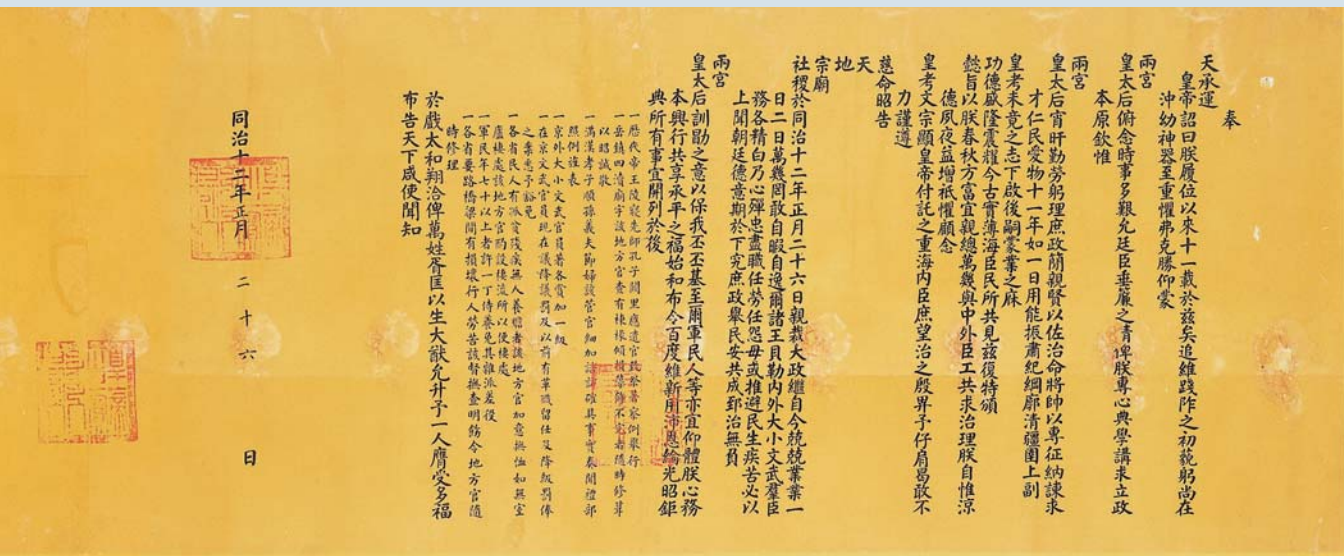 奉
天承運
皇帝詔曰朕履位以來十一載於茲矣追維踐阼之初藐躬尚在
沖幼神器至重懼弗克勝仰蒙
兩宮
皇太后俯念時事多艱允廷臣垂簾之請俾朕專心典學講求立政
本原欽惟
兩宮
皇太后宵旰勤勞躬理庶政簡親賢以佐治命將帥以專征納諫求
才仁民愛物十一年如一日用能振肅紀綱廓清疆圉上副
皇考未竟之志下啟後嗣蒙業之庥
功德盛隆震耀今古實薄海臣民所共見茲復特頒
懿旨以朕春秋方富宜親總萬幾與中外臣工共求治理朕自惟涼
德夙夜益增祗懼顧念
皇考文宗顯皇帝付託之重海內臣庶望治之殷畀予仔肩曷敢不
力謹遵
慈命昭告
天
地
宗廟
社稷於同治十二年正月二十六日親裁大政繼自今兢兢業業一
日二日萬幾罔敢自暇自逸爾諸王貝勒內外大小文武羣臣
務各精白乃心殫忠盡職任勞任怨毋或推避民生疾苦必以
上聞朝廷德意期於下究庶政舉民安共成郅治無負
兩宮
皇太后訓勖之意以保我丕丕基至爾軍民人等亦宜仰體朕心務
本興行共享承平之福始和布令百度維新用沛恩綸光昭鉅
典所有事宜開列於後
一歷代帝王陵寢先師孔子闕里應遣官致祭著察例舉行
一嶽鎮四瀆廟宇該地方官查有棟樑傾損牆傾不完者隨時修葺
以昭誠敬
一滿漢孝子順孫義夫節婦該管官細加諮訪確具事實奏聞禮部
照例旌表
一京外大小文武官員著各賞加一級
一在京文武官員現在議降議罰及以前有革職留任及降級罰俸
之案悉予豁免
一各省民人有孤貧殘疾無人養贍者該地方官加意撫恤如無室
廬棲處該地方官酌設棲流所以便棲處
一軍民年七十以上者許一丁侍養免其雜派差役
一各省要路橋梁間有損壞行人勞苦該督撫查明飭令地方官隨
時修理
於戲太和翔洽俾萬姓胥匡以生大猷允升予一人膺受多福
布告天下咸使聞知
同治十二年正月二十六日